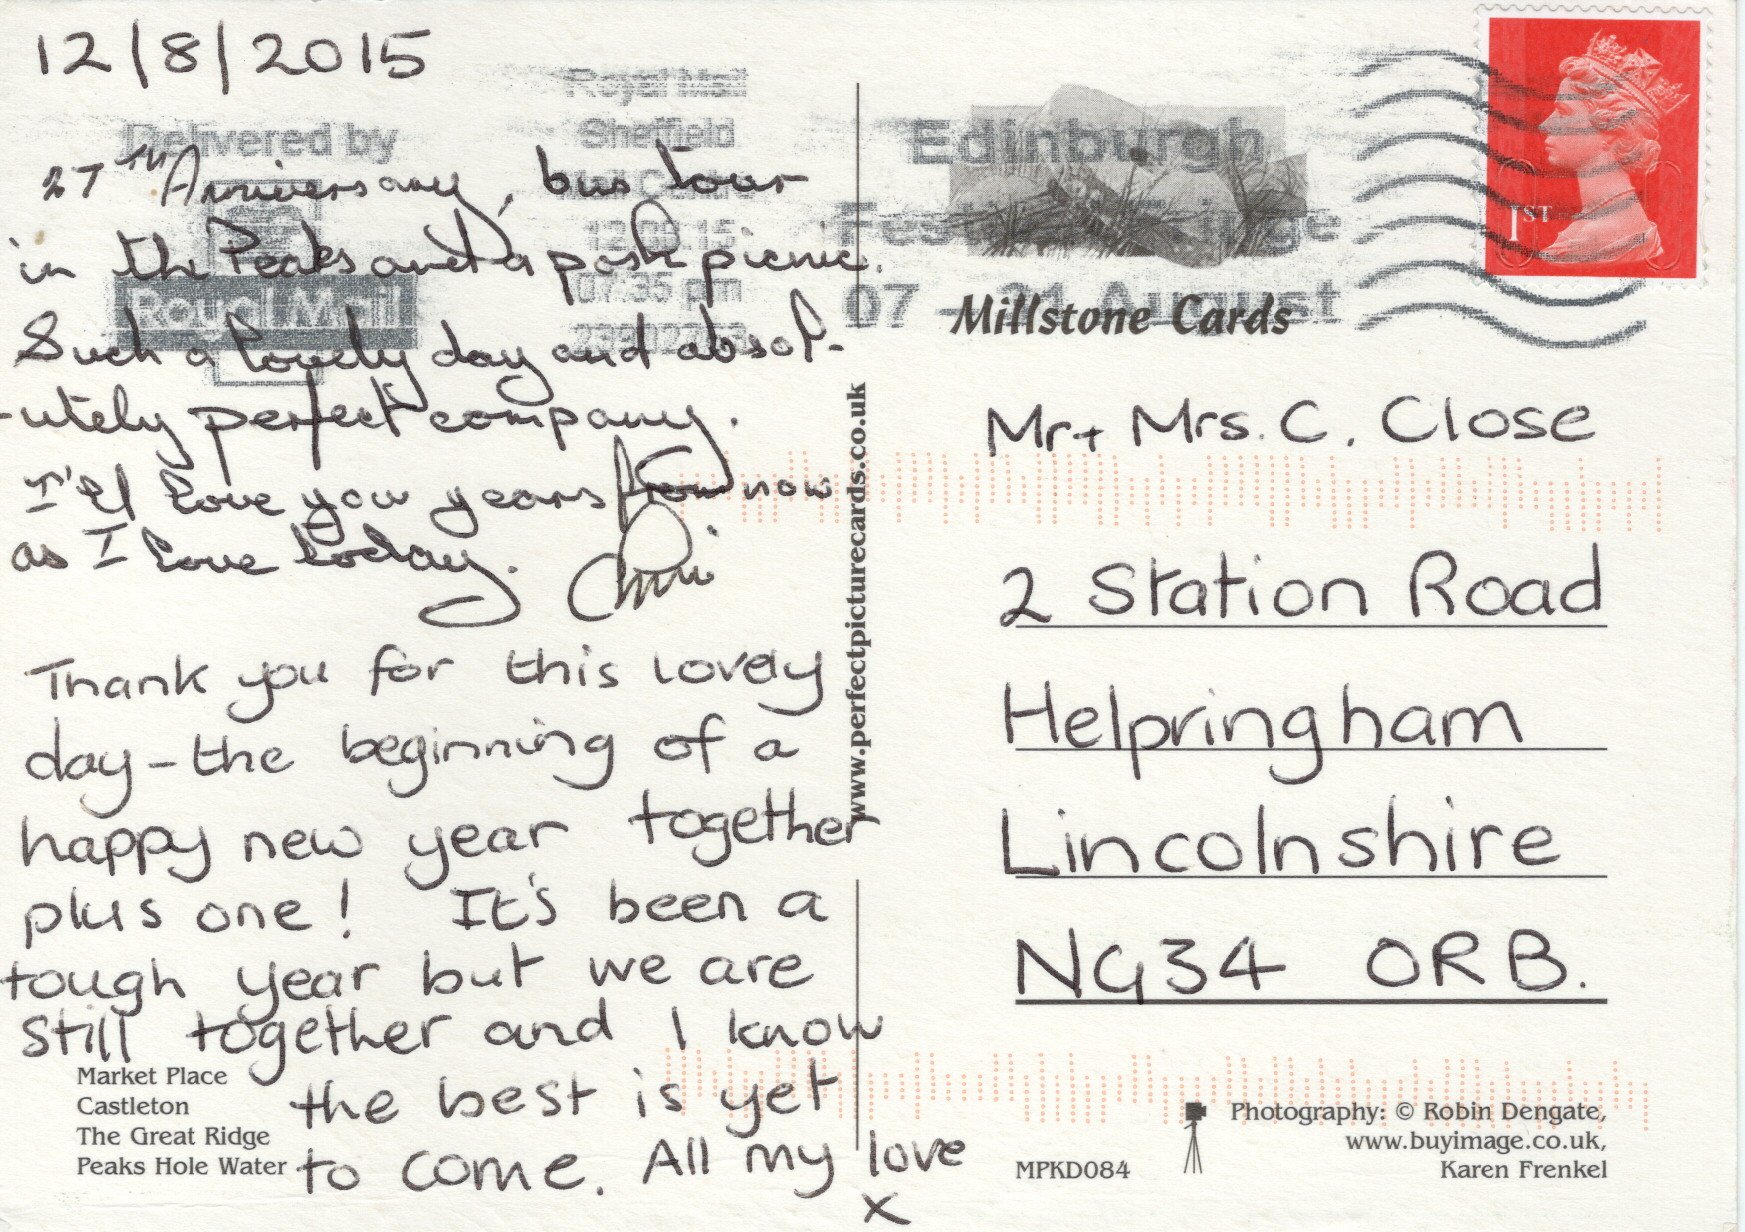 12/8/2015
27TH Anniversary, bus tour
in the Peaks and a posh picnic.
Such a lovely day and absol-
-utely perfect company.
I'll love you years from now
as I love today.
Thank you for this lovely
day - the beginning of a
happy new year together
plus one! It's been a
tough year but we are
still together and I know
the best is yet
to come. All my love
x
Market Place
Castleton
The Great Ridge
Peaks Hole Water
Delivered by
Royal Mail
Royal Mail
Sheffield
12.08.15
07.35 pm
Edinburgh
Festival Fringe
07 - 31 August
1ST
Millstone Cards
www.perfectpicturecards.co.uk
Mr + Mrs. C. Close
2 Station Road
Helpringham
Lincolnshire
NG34 ORB.
MPKD084
Photography: © Robin Dengate,
www.buyimage.co.uk,
Karen Frenkel